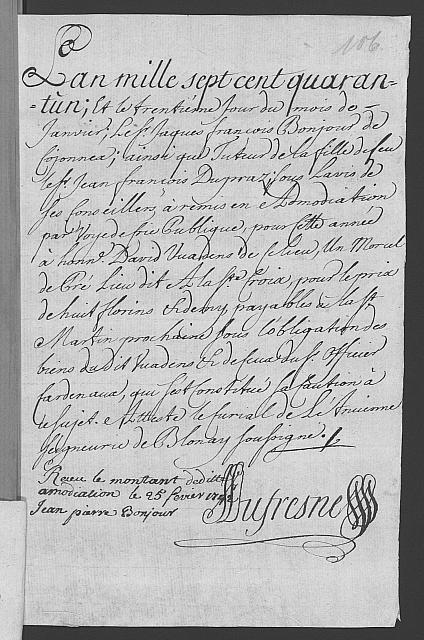 106.
L'an mille sept cent quaran-
-tùn; Et le trentiéme Jour du mois de
Janvier, Le Sr. Jaques françois Bonjour de
Cojonnex; ainsi que Tuteur de la fille de feu
le Sr. Jean françois Dupraz; sous Lavis de
ses Conseillers, à remis en Admodiation
par Voye de Crie Publique, pour cette année
à honn. David Vuadens de ce Lieu, Un Morcel
de Pré Lieu dit à la Ste. Croix, pour le prix
de huit florins & demy, payables à la St.
Martin prochaine sous l'obligation des
biens du dit Vuadens & de ceux du Sr. Officier
Cardenaux, qui s'est Constitué sa Caution à
ce sujet. Atteste le Curial de L'Ancienne
Seigneurie de Blonay Soussigné.
Receu le montant de ditte
amodiation le 25e fevier
Jean piarre Bonjour
Dufresne